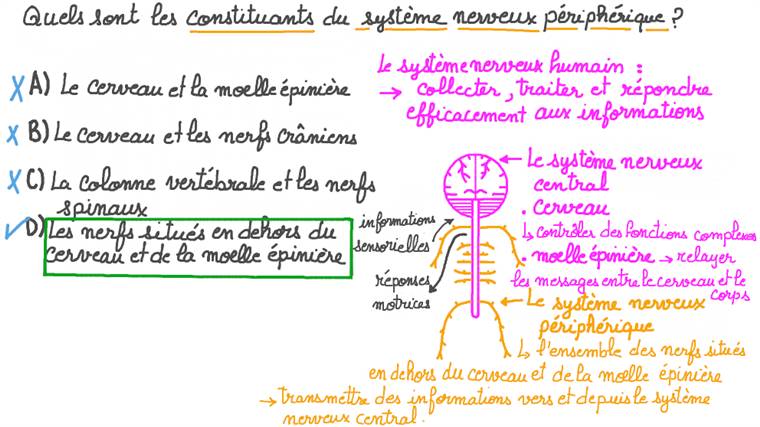 Quels sont les constituants du système nerveux périphérique ?
A) Le cerveau et la moelle épinière
B) Le cerveau et les nerfs crâniens
C) La colonne vertébrale et les nerfs
spinaux
D) Les nerfs situés en dehors du
cerveau et de la moelle épinière
Le système nerveux humain :
→ collecter, traiter et répondre
efficacement aux informations
→ Le système nerveux
central
• cerveau
↳ contrôler des fonctions complexes
• moelle épinière → relayer
les messages entre le cerveau et le
corps
informations
sensorielles
réponses
motrices
→ Le système nerveux
périphérique
↳ l'ensemble des nerfs situés
en dehors du cerveau et de la moelle épinière
→ transmettre des informations vers et depuis le système
nerveux central.